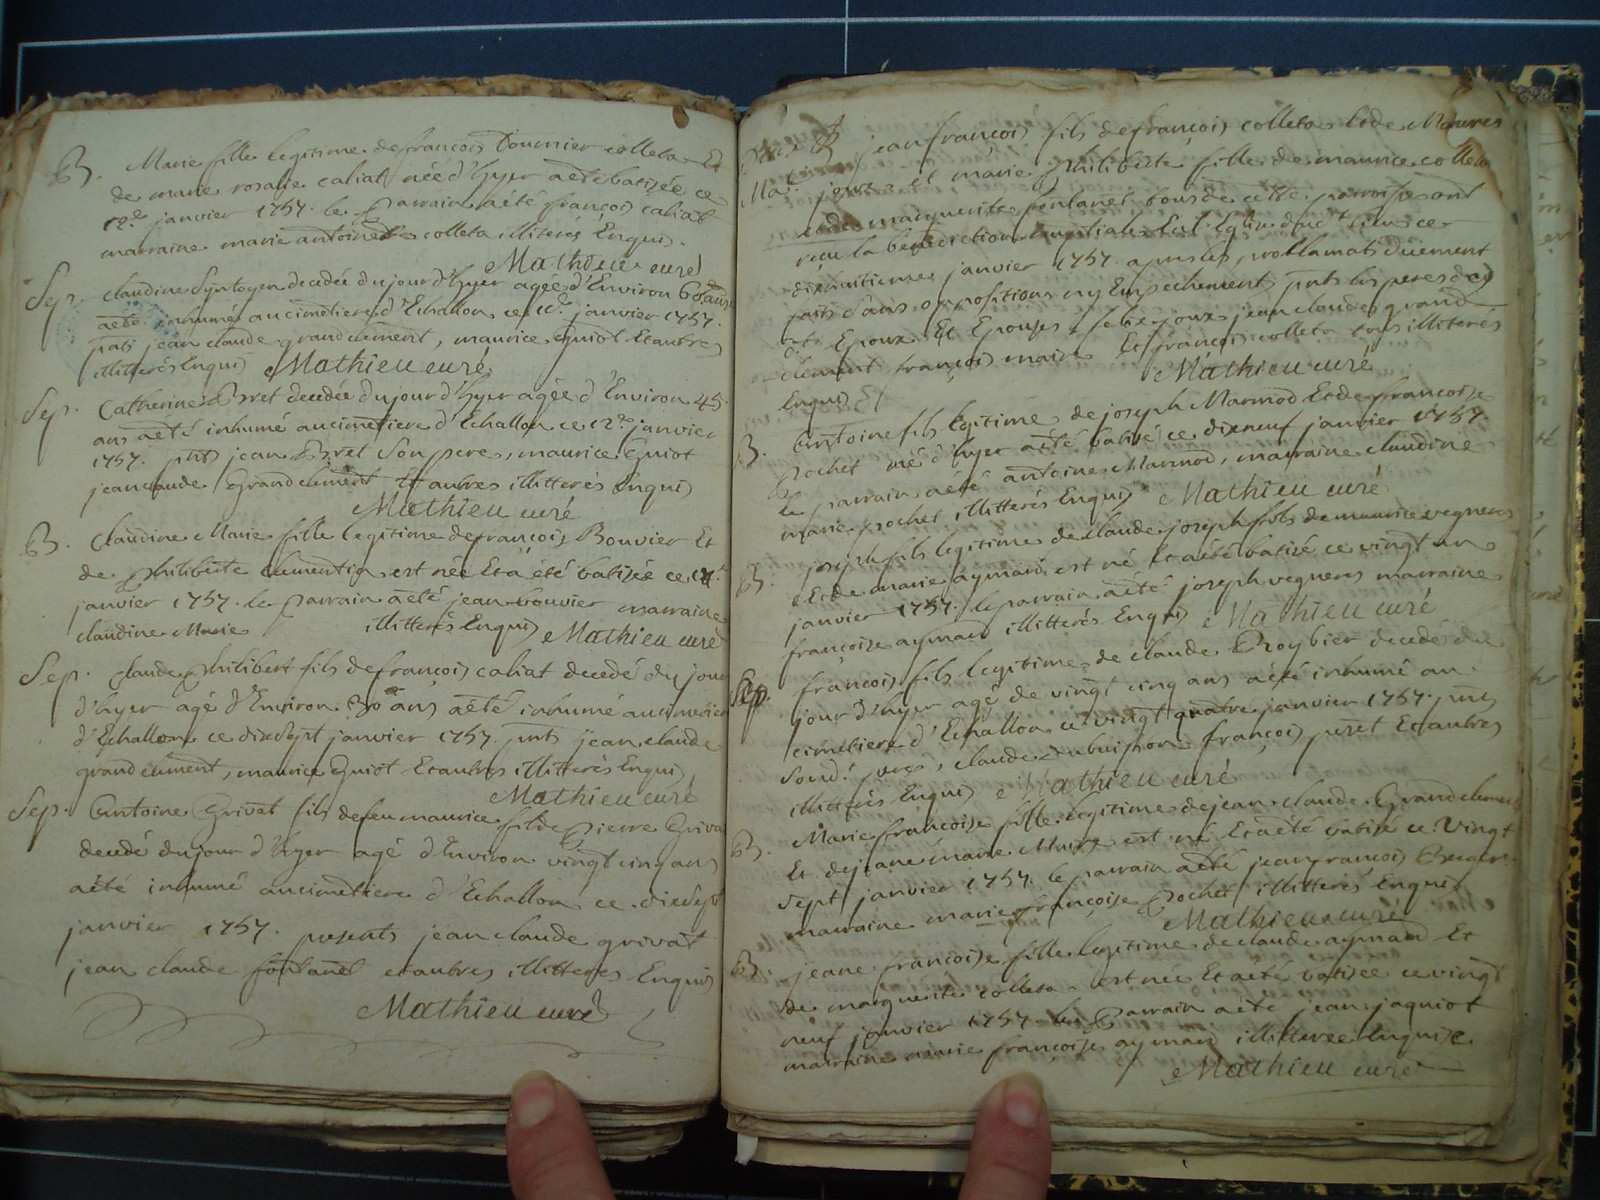 B. Marie fille legitime de françois Tournier colleta Et
de marie rosalie caliat née d'hyer aété batisée ce
12e janvier 1757. le Parrain aété françois caliat
marraine marie antoinette colleta illiterés Enquis.
Mathieu curé
Sep. claudine decedée du jour d'hyer agée d'Environ 60 ans
aété inhumé au cimetiere d'Echallon ce janvier 1757.
pnts jean claude grandclement, maurice Guiot Et autres
illitterés Enquis Mathieu curé
Sep. Catherine Perret decedée du jour d'hyer agée d'Environ 45
ans aété inhumé au cimetiere d'Echallon ce 12e janvier
1757. pnts jean Perret Son pere, maurice Guiot
jean claude Grandclement Et autres illitterés Enquis
Mathieu curé
B. Claudine Marie fille legitime de françois Bouvier Et
de Philiberte est née Et a été batisée ce
janvier 1757. le Parrain aété jean bouvier marraine
claudine Marie illitterés Enquis Mathieu curé
Sep. claude Philibert fils de françois caliat decedé du jour
d'hyer agé d'Environ 30 ans aété inhumé au cimetiere
d'Echallon ce dixsept janvier 1757. pnts jean claude
grandclement, maurice Guiot Et autres illitterés Enquis,
Mathieu curé
Sep. Antoine Grivat fils de feu maurice fils de Pierre Griva
decedé du jour d'hyer agé d'Environ vingt cinq ans
aété inhumé au cimetiere d'Echallon ce dixsept
janvier 1757. presents jean claude grivat
jean claude fontanel et autres illitteres Enquis
Mathieu curé
jean françois fils de françois colleta Et de
Mar. et marie Philiberte fille de maurice colleta
et de marguerite fontanel tous de cette parroisse ont
reçu la benediction nuptiale
dixhuitieme janvier 1757. apres les proclamats düement
faits sans oppositions ny Empechement pnts les peres des
Epoux Et Epouses felix joux jean claude grand
clement françois maire Et françois colleta tous illiterés
Enquis Mathieu curé
B. Antoine fils legitime de joseph Marmod Et de françoise
Pochet né d'hyer aété batisé ce dixneuf janvier 1757.
le parrain aété antoine Marmod, marraine claudine
marie pochet illitterés Enquis Mathieu curé
B. joseph fils legitime de claude joseph fils de maurice vegneres
Et de marie aymard est né Et aété batisé ce vingt un
janvier 1757. le parrain aété joseph vegneres marraine
françoise aymard illitterés Enquis Mathieu curé
Sep. françois fils legitime de claude Roybier decedé du
jour d'hyer agé de vingt cinq ans aété inhumé au
cimetiere d'Echallon ce vingt quatre janvier 1757. pnts
Sond. pere, claude dubuisson françois perret Et autres
illitterés Enquis Mathieu curé
B. Marie françoise fille legitime de jean claude Grandclement
Et de jeane marie Maire est né Et aété batisé ce Vingt
Sept janvier 1757. le parrain aété jean françois
marraine marie françoise Pochet illitterés Enquis
Mathieu curé
B. jeane françoise fille legitime de claude aymard Et
de marguerite colleta est née Et aété batisée ce vingt
neuf janvier 1757. le Parrain aété jean jaquiot
marraine marie françoise aymard illitteree Enquise
Mathieu curé